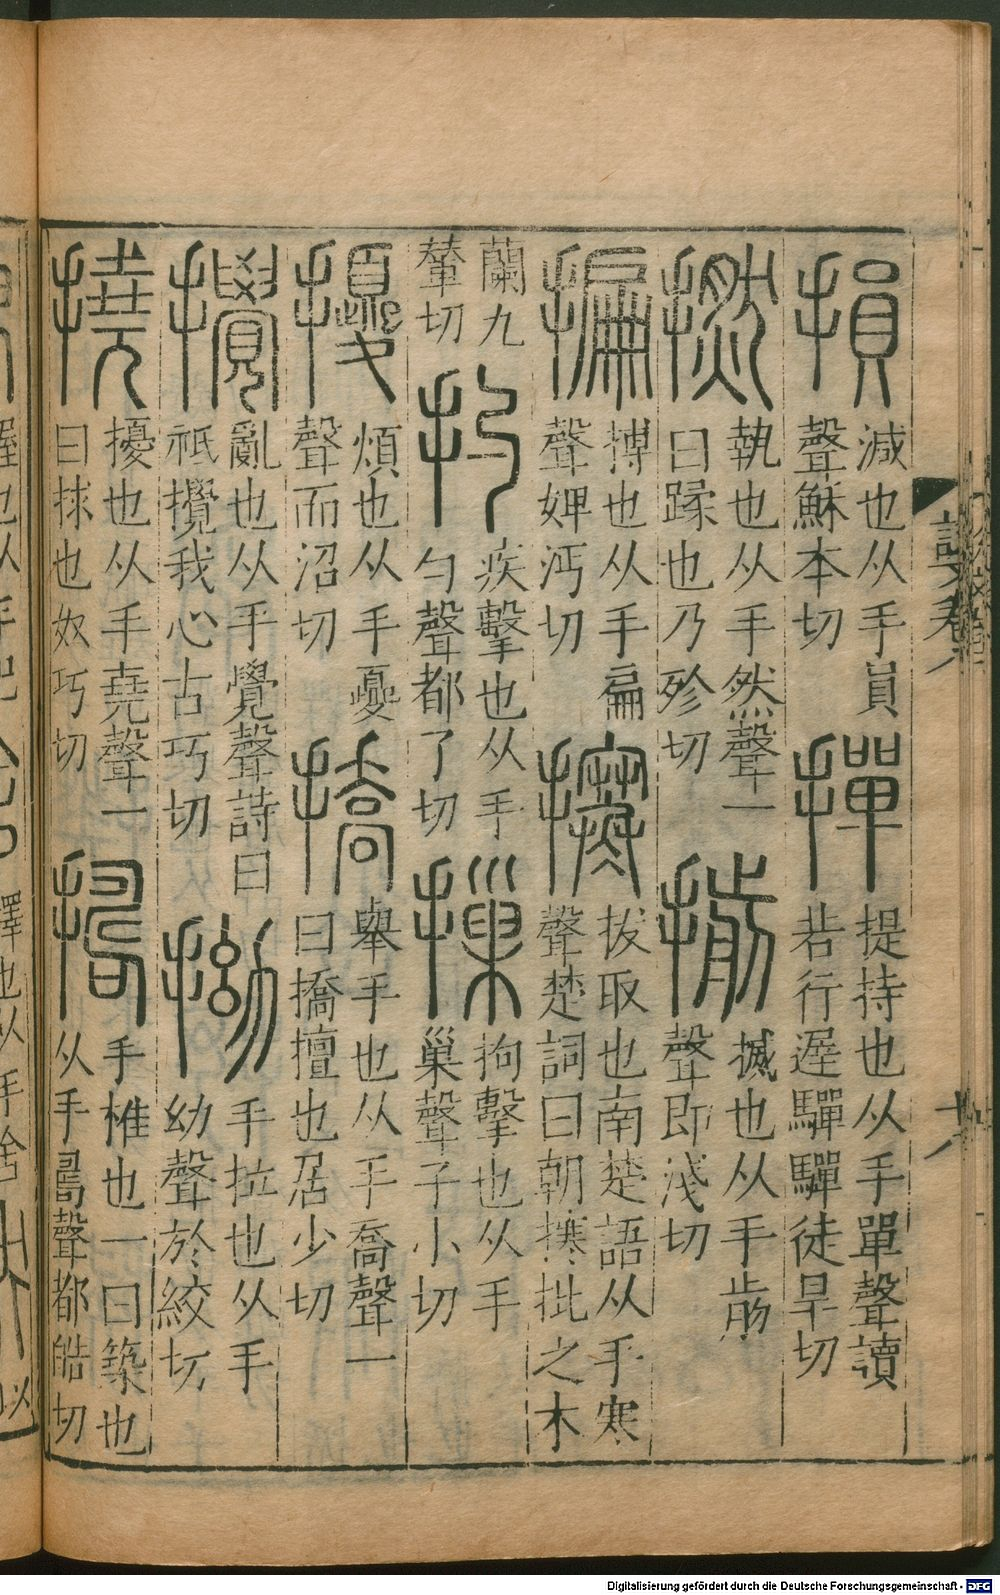 說文卷八
損
減也从手員
聲穌本切
撣
提持也从手單聲讀
若行遲驒驒徒旱切
撚
執也从手然聲一
曰蹂也乃殄切
揃
搣也从手歬
聲即淺切
揙
搏也从手扁
聲婢沔切
㩃
拔取也南楚語从手寒
聲楚詞曰朝㩃批之木
蘭九
輦切
扚
疾擊也从手
勺聲都了切
摷
拘擊也从手
巢聲子小切
擾
煩也从手夒
聲而沼切
撟
舉手也从手喬聲一
曰撟擅也居少切
攪
亂也从手覺聲詩曰
祇攪我心古巧切
拗
手拉也从手
幼聲於絞切
撓
擾也从手堯聲一
曰捄也奴巧切
擣
手椎也一曰築也
从手𠷎聲都皓切
釋也从手舍
Digitalisierung gefördert durch die Deutsche Forschungsgemeinschaft - DFG